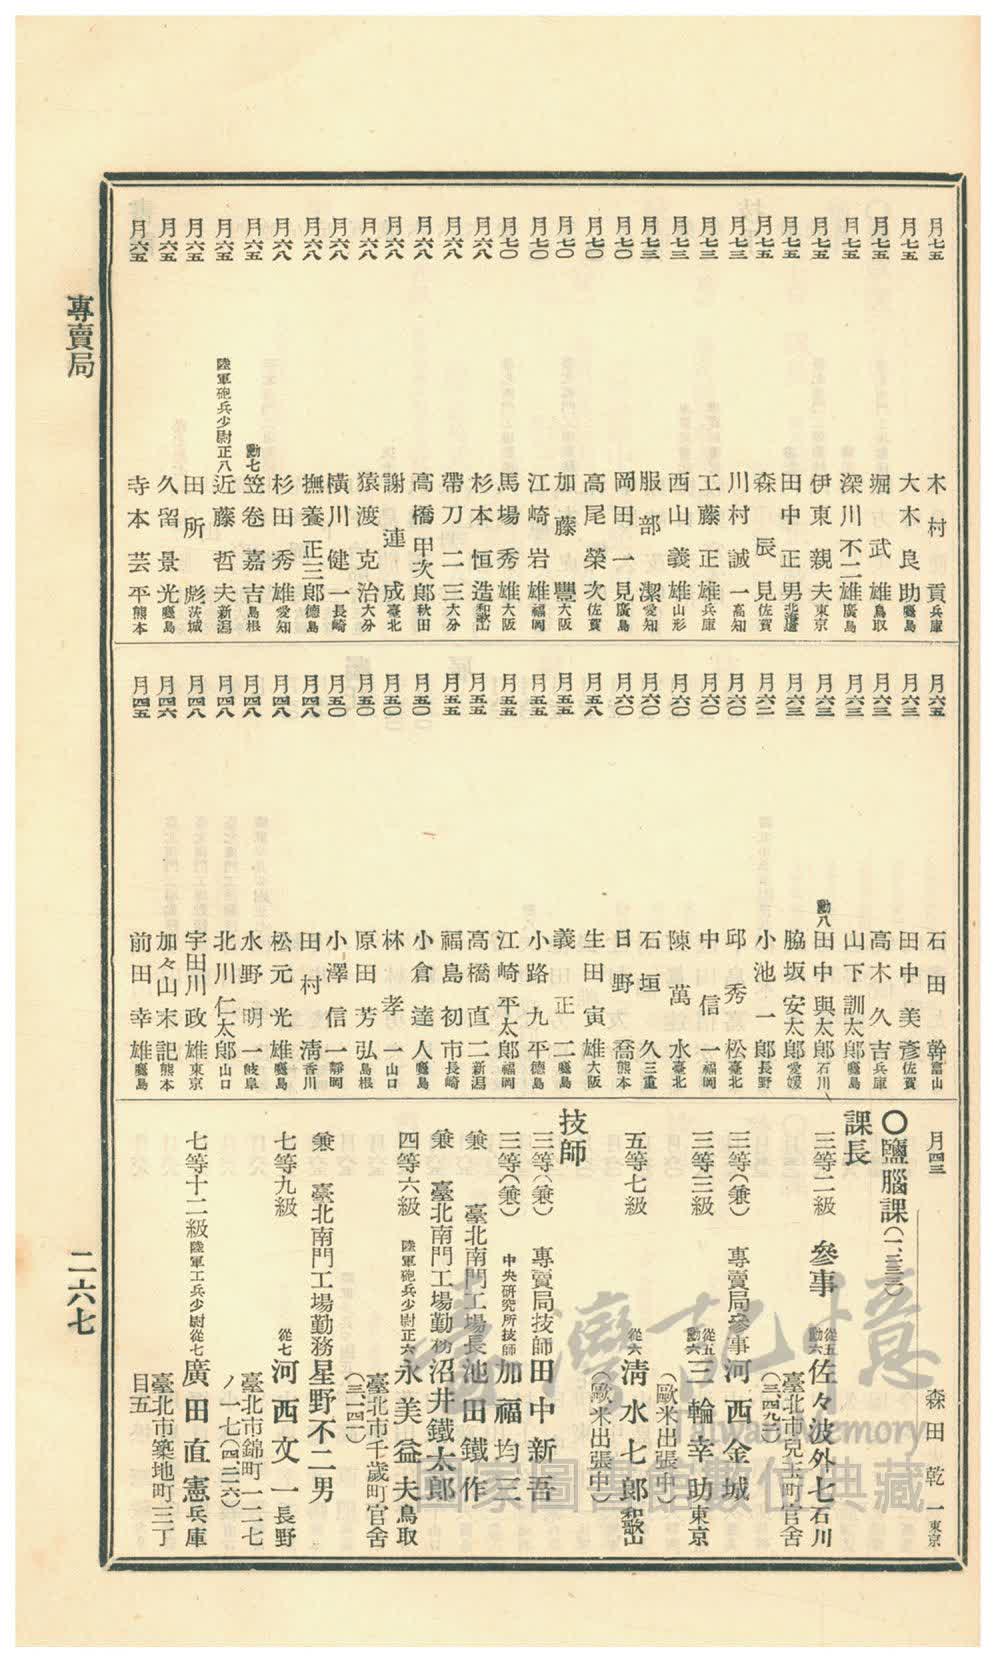 專賣局
二六七
月七五 木村貢 兵庫
月七五 大木良助 鹿兒島
月七五 堀武雄 鳥取
月七五 深川不二雄 廣島
月七五 伊東親夫 東京
月七五 田中正男 北海道
月七五 森辰見 佐賀
月七三 川村誠一 高知
月七三 工藤正雄 兵庫
月七三 西山義雄 山形
月七三 服部潔 愛知
月七〇 岡田一見 廣島
月七〇 高尾榮次 佐賀
月七〇 加藤豐 大阪
月七〇 江崎岩雄 福岡
月七〇 馬場秀雄 大阪
月六八 杉本恒造 和歌山
月六八 帶刀二三 大分
月六八 高橋甲次郎 秋田
月六八 謝連成 臺北
月六八 猿渡克治 大分
月六八 橫川健一 長崎
月六八 撫養正三郎 德島
月六八 杉田秀雄 愛知
月六五 勳七 笠卷嘉吉 島根
月六五 陸軍砲兵少尉正八 近藤哲夫 新潟
月六五 田所彪 茨城
月六五 久留景光 鹿兒島
月六五 寺本芸平 熊本
月六五 石田幹 富山
月六三 田中美彥 佐賀
月六三 高木久吉 兵庫
月六三 山下訓太郎 鹿兒島
月六三 勳八 田中與太郎 石川
月六三 脇坂安太郎 愛媛
月六二 小池一郎 長野
月六〇 邱秀松 臺北
月六〇 中信一 福岡
月六〇 陳萬水 臺北
月六〇 石垣久 三重
月六〇 日野喬 熊本
月五八 生田寅雄 大阪
月五五 義正二 鹿兒島
月五五 小路九平 德島
月五五 江崎平太郎 福岡
月五五 高橋直二 新潟
月五五 福島初市 長崎
月五〇 小倉達人 鹿兒島
月五〇 林孝一 山口
月五〇 原田芳弘 島根
月五〇 小澤信一 靜岡
月四八 田村淸 香川
月四八 松元光雄 鹿兒島
月四八 水野明一 岐阜
月四八 北川仁太郎 山口
月四八 宇田川政雄 東京
月四六 加々山末記 熊本
月四五 前田幸雄 鹿兒島
月四三 森田乾一 東京
〇鹽腦課(一、二三三)
課長
三等二級 參事 從五勳六 佐々波外七 石川
臺北市兒玉町官舍(三、四九一)
三等(兼) 專賣局參事 河西金城
三等三級 從五勳六 三輪幸助 東京
(歐米出張中)
五等七級 從六 淸水七郎 和歌山
(歐米出張中)
技師
三等(兼) 專賣局技師 田中新吾
三等(兼) 中央研究所技師 加福均三
兼 臺北南門工場長 池田鐵作
兼 臺北南門工場勤務 沼井鐵太郎
四等六級 陸軍砲兵少尉正六 永美益夫 鳥取
臺北市千歲町官舍(三、一四一)
兼 臺北南門工場勤務 星野不二男
七等九級 從七 河西文一 長野
臺北市錦町一二七ノ一七(四、三三六)
七等十二級 陸軍工兵少尉從七 廣田直憲 兵庫
臺北市築地町三丁目五
臺灣記憶
Taiwan Memory
國家圖書館數位典藏